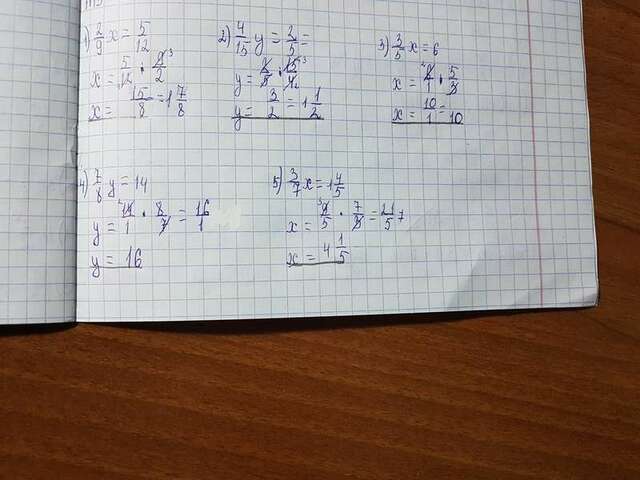 1) 2/9 x = 5/12
x = 5/12 · 9/2
x = 15/8 = 1 7/8
2) 4/15 y = 2/5 =
y = 2/5 · 15/4
y = 3/2 = 1 1/2
3) 3/5 x = 6
x = 6/1 · 5/3
x = 10/1 = 10
4) 7/8 y = 14
y = 14/1 · 8/7 = 16/1
y = 16
5) 3/7 x = 1 4/5
x = 9/5 · 7/3 = 21/5
x = 4 1/5